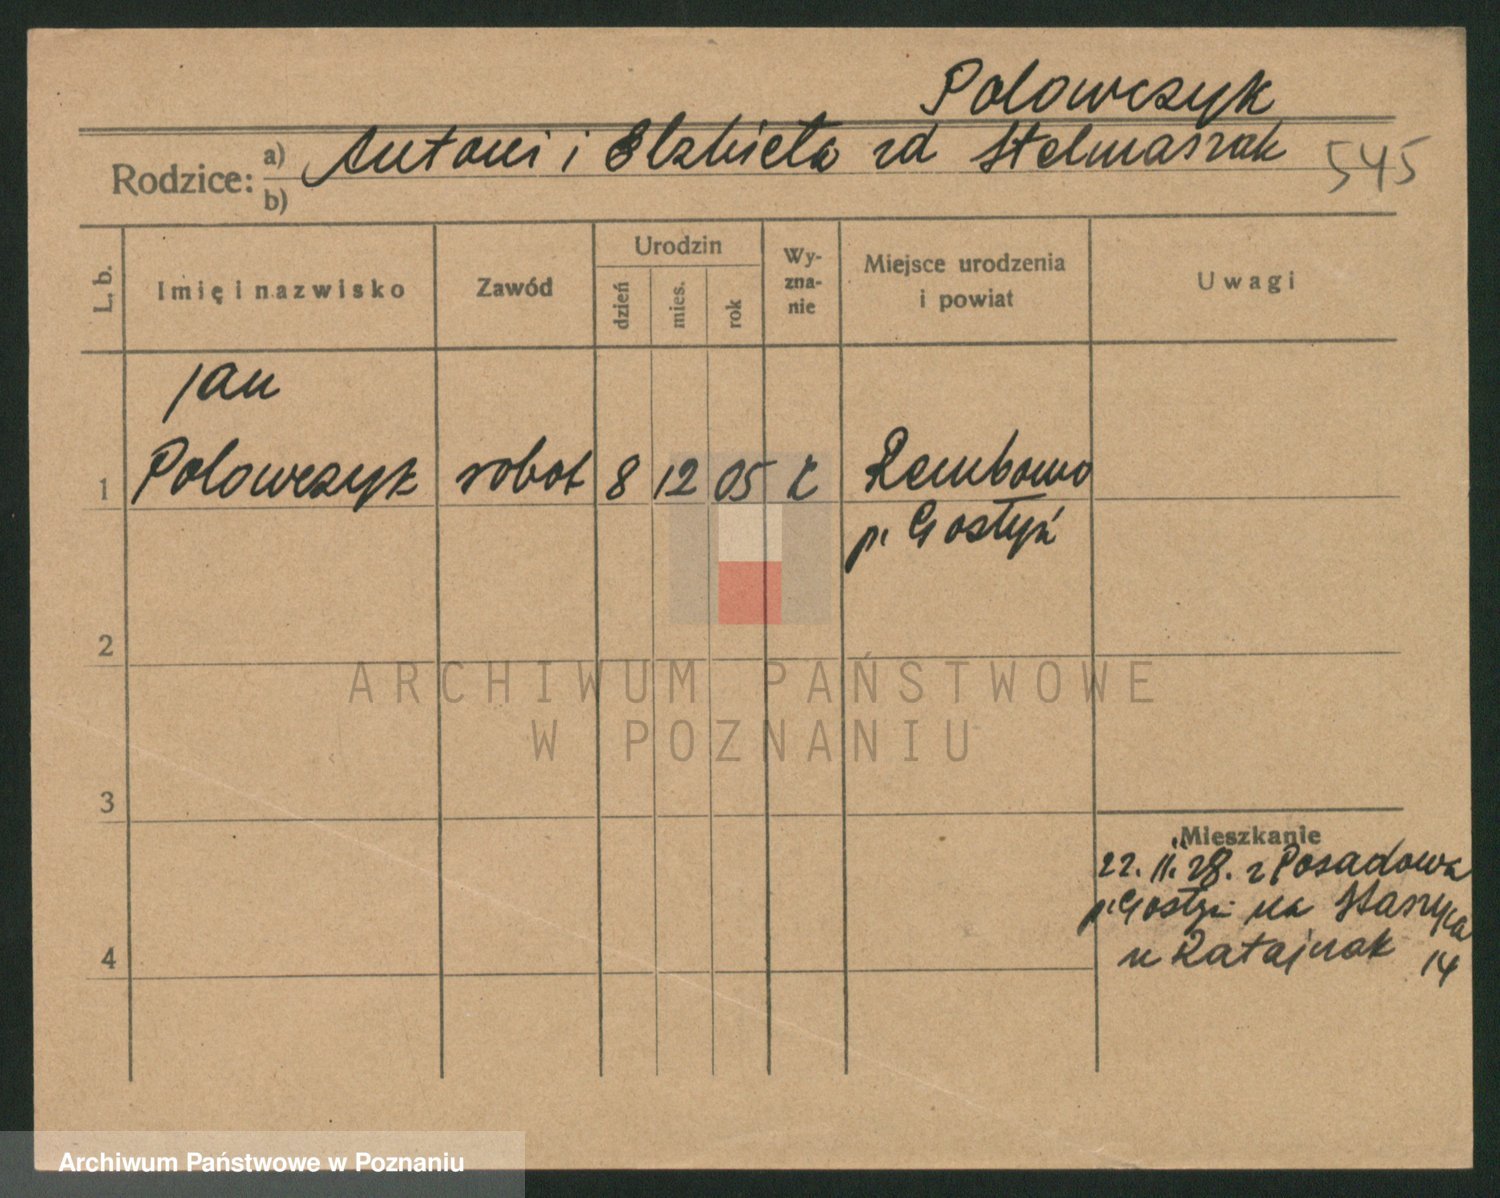 Polowczyk
Rodzice: a) Antoni i Elzbieta zd Stelmaszak 545
b)
L. b.
Imię i nazwisko
Zawód
Urodzin
dzień
mies.
rok
Wy-
zna-
nie
Miejsce urodzenia
i powiat
Uwagi
Jan
1 Polowczyk robot 8 12 05 k Rembowo
p. Gostyń
2
ARCHIWUM PAŃSTWOWE
W POZNANIU
3
Mieszkanie
22. 11. 28. z Posadowa
p. Gostyń na Staszyca
u Ratajczak 14
4
Archiwum Państwowe w Poznaniu